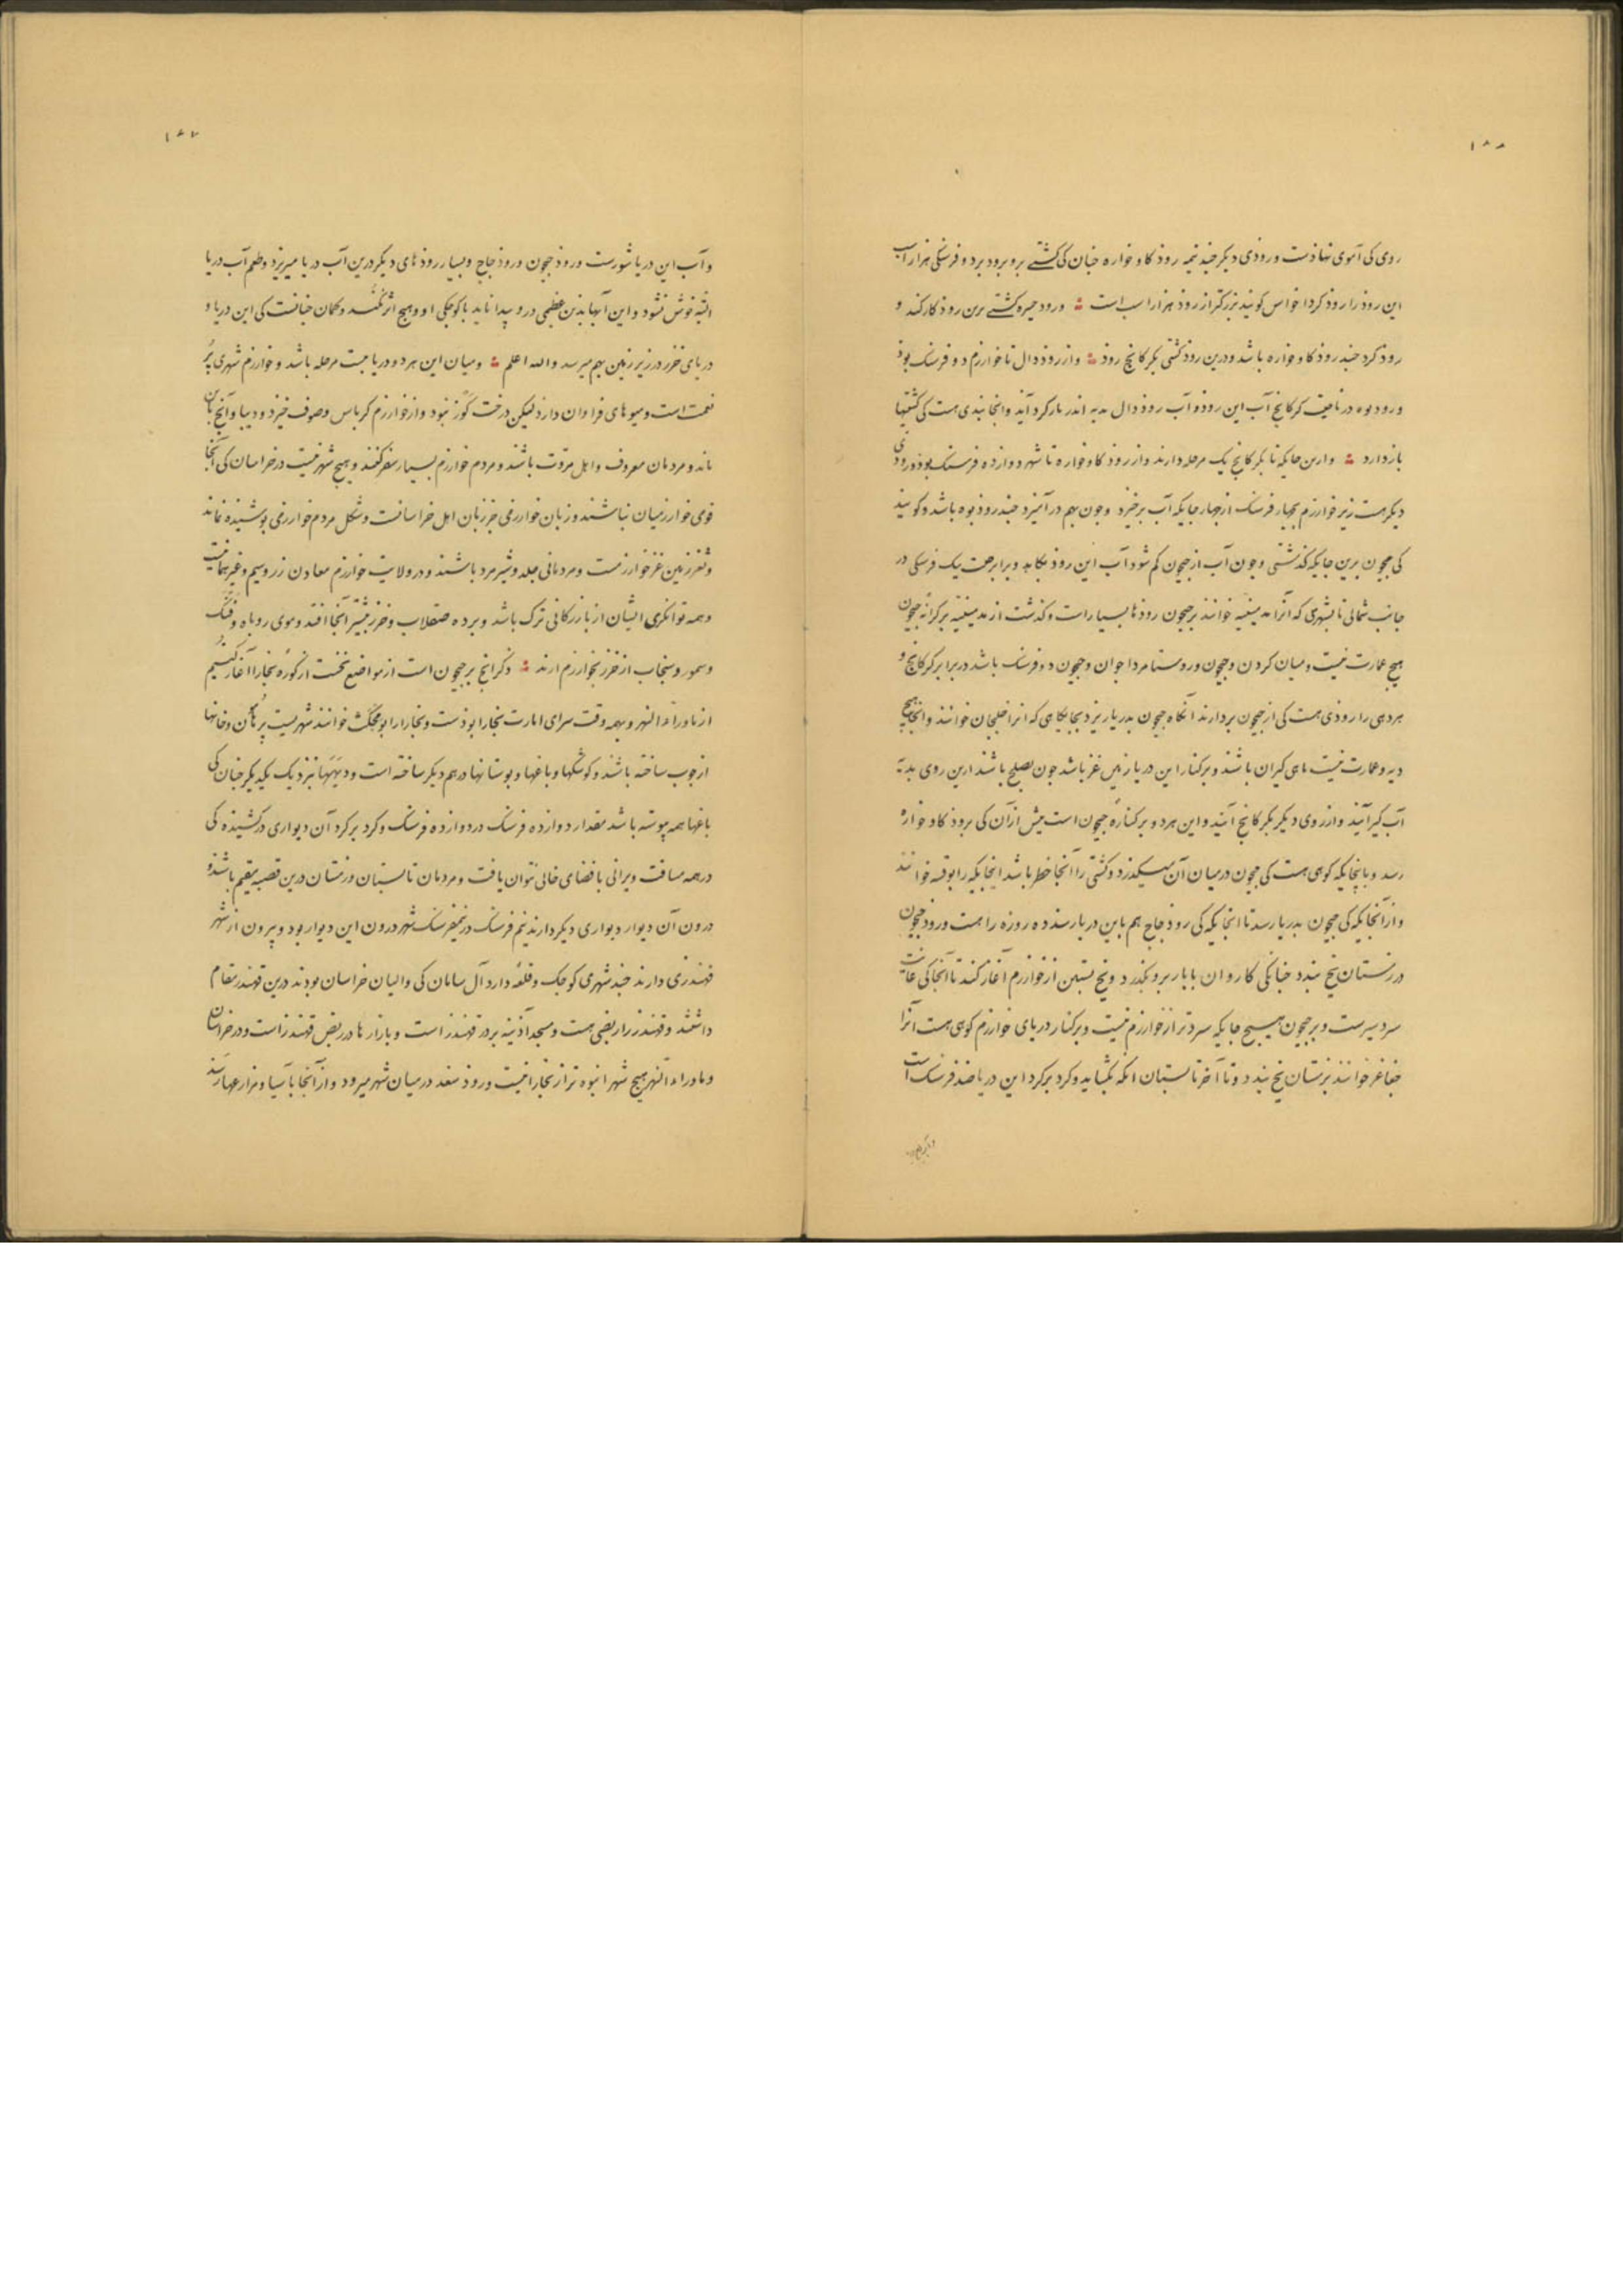 ۱۸۸
روی کی آموی نهاذست و روذی دیکر چند نیمه روذ کاو خواره چنان کی کشتے برو برود برد و فرسنکی هزار اسب
این روذ را روذ کردا خواس کویند بزرکتر از روذ هزار اسب است ؞ و روذ خیره کشتے برین روذ کار کند و
روذ کرد چند روذ کاو خواره باشد و درین روذ کشتی بکرکانج روذ ؞ و از روذ دال تا خوارزم دو فرسنک بوذ
و روذ بوه در ناحیت کرکانج آب این روذ و آب روذ دال بدیه اندر بار کرد آید و انجا بندی هست کی کشتیها
باز دارد ؞ و ازین جایکه تا بکرکانج یک مرحله دارند و از روذ کاو خواره تا شهر دوازده فرسنک بوذ و روذی
دیکر هست زیر خوارزم بچهار فرسنک از چهار جایکه آب برخیزد و چون بهم در آمیزد چند روذ بوه باشد و کویند
کی جیحون برین جایکه کذشتی و چون آب از جیحون کم شوذ آب این روذ بکاهد و برابر جیت یک فرسنکی در
جانب شمالی تا بشهری که آنرا مدمینیه خوانند بر جیحون روذها بسیار است و کذشت از مدمینیه بر کرانه جیحون
هیچ عمارت نیست و میان کردن و جیحون و روستا مرداجوان و جیحون دو فرسنک باشد در برابر کرکانج و
هر دهی را روذی هست کی از جیحون بردارند آنکاه جیحون بدریا ریزد بجایکاهی که آنرا خلیجان خوانند و انجا هیچ
دیه و عمارت نیست ماهی کیران باشند و بر کنار این دریا زمین غز باشد چون بصلح باشند ازین روی بدیه
آب کیر آیند و از روی دیکر بکرکانج آیند و این هر دو بر کناره جیحون است پیش ازآن کی بروذ کاو خواره
رسد و بانجایکه کوهی هست کی جیحون درمیان آن میکذرد و کشتی را آنجا خطر باشد انجایکه را بوقشه خوانند
و از آنجایکه کی جیحون بدریا رسد تا انجایکه کی روذ چاج هم باین دریا رسد ده روزه راهست و روذ جیحون
در زمستان یخ بندد چنانکی کاروان با بار برو بکذرد و یخ بستن از خوارزم آغاز کند تا آنجا کی غایت
سردسیرست و بر جیحون هیچ جایکه سردتر از خوارزم نیست و بر کنار دریای خوارزم کوهی هست آنرا
جغاغز خوانند بزمستان یخ بندد و تا آخر تابستان آنکه بکشاید و کرد بر کرد این دریا صد فرسنک است
۱۸۷
و آب این دریا شورست و روذ جیحون و روذ چاج و بسیار روذهای دیکر درین آب دریا میریزد و طعم آب دریا
البته خوش نشود و این آبها بدین عظیمی درو پیدا ناید با کوچکی او و هیچ اثر نکند و کمان چنانست کی این دریا و
دریای خزر در زیر زمین بهم میرسد والله اعلم ؞ و میان این هر دو دریا بیست مرحله باشد و خوارزم شهری پر
نعمت است و میوهای فراوان دارد لیکن درخت کوز نبود و از خوارزم کرباس و صوف خیزد و دیبا و آنچ بان
ماند و مردمان معروف و اهل مروت باشند و مردم خوارزم بسیار سفر کنند و هیچ شهر نیست در خراسان کی آنجا
قومی خوارزمیان نباشند و زبان خوارزمی جز زبان اهل خراسانست و شکل مردم خوارزمی پوشیده نماند
و ثغر زمین غز خوارزمست و مردمانی جلد و شیر مرد باشند و در ولایت خوارزم معادن زر و سیم و غیرهما نیست
و همه توانکری ایشان از بازرکانی ترک باشد و برده صقلاب و خزر بیشتر آنجا افتد و موی روباه و فنک
و سمور و سنجاب از خزر بخوارزم ارند ؞ ذکر انچ بر جیحون است از مواضع نخست از کوره بخارا آغاز کنیم
از ماوراء النهر و بهمه وقت سرای امارت بخارا بوذست و بخارا را بومجکث خوانند شهریست پر ماکن و خانها
از چوب ساخته باشند و کوشکها و باغها و بوستانها درهم دیکر ساخته است و دیهها نزدیک یکدیکر چنان کی
باغها همه پیوسته باشد مقدار دوازده فرسنک در دوازده فرسنک و کرد بر کرد آن دیواری در کشیذه کی
در همه مسافت ویرانی یا فضای خالی نتوان یافت و مردمان تابستان و زمستان درین قصبه مقیم باشند و
درون آن دیوار دیواری دیکر دارند نیم فرسنک در نیم فرسنک شهر درون این دیوار بود و بیرون از شهر
قهندزی دارند چند شهری کوچک و قلعه دارد آل سامان کی والیان خراسان بودند درین قهندز مقام
داشتند و قهندز را ربضی هست و مسجد آذینه بر در قهندز است و بازارها در ربض قهندز است و در خراسان
و ماوراء النهر هیچ شهر انبوه تر از بخارا نیست و روذ سغد درمیان شهر میرود و از آنجا بآسیا و مزارعها رسد